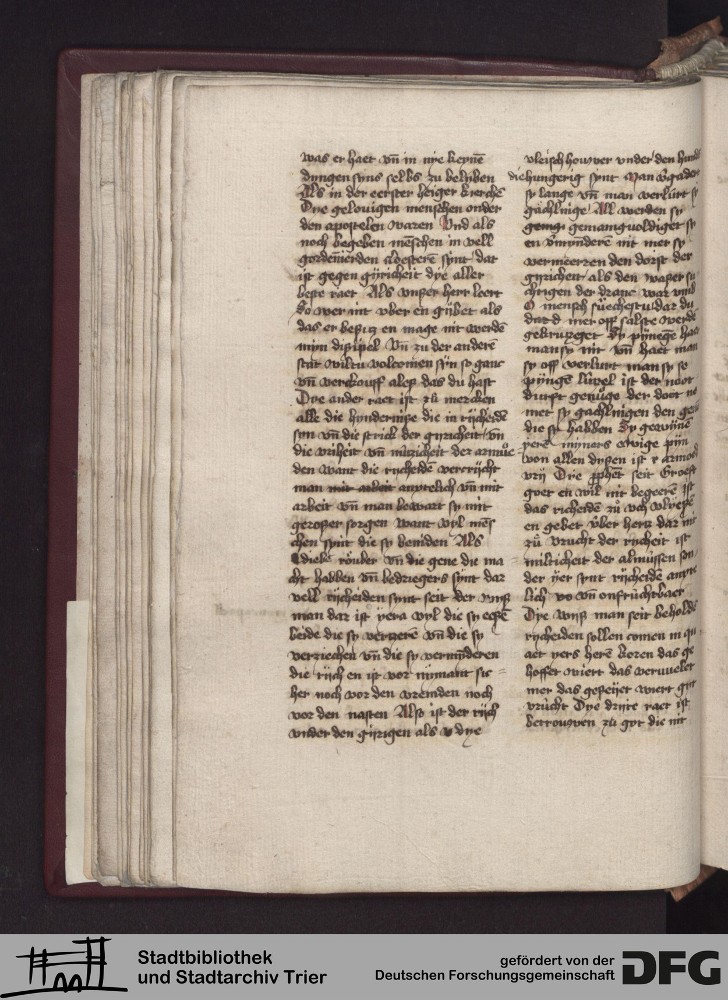 was er haet vn̄ in nÿe keynē
dyngen syns selbs zu belyben
Als in der eerster heiger kirchē
Dye gelouigen menschen onder
den apostelen waren Vnd als
noch begeben mēschen in vell
ist gegen gyricheit dye aller
beste raet Als vnser herr leert
So wer nit vber en gybet als
das er besitz en mage nit werdē
myn dissipel Vn̄ zu der anderē
stat wiltu volcomen syn so ganc
vn̄ verkouff alles das du hast
Dye ander raet ist zů mercken
alle die hyndernisse die in rijcheidē
syn vn̄ die strick der gyricheit vn̄
die vriheit vn̄ miltzicheit der armůe
den want die rijcheidē vercrijcht
man mit arbeit anxtelich vn̄ mit
arbeit vn̄ man bewart sy mit
grosser sorgen want vyl mēs
chen synt die sy beniden Als
diebe röuber vn̄ die gene die ma
cht habben vn̄ bedriegers synt dar
vell rijcheiden synt seit der wyse
man dar ist yera vyl die sy essē
beide die sy verzerē vn̄ die sy
verziechen vn̄ die sy vermȳderen
die rijch en ist vor nymant sic
her noch vor den vremden noch
vor den nasten Also ist der rijch
vnder den gyrigen als v dye
vleisch houwer vnder den hunde
die hungerig synt Man vgader
sy lange vn̄ man verlürt sy
gächlinge All werden sy
gemanigvoldiget sy
en vmynderē nit mer sy
vermeerren den dorst der
gyricheit als den wasser su
chtigen der dranc
O mensch süechestu dar du
dat d mer off salste werdē
gebruyget Dy pynegē
man sy nit vn̄ haet man
sy off verlürt man sy so
pyngē lützel ist der noot
durst genůge der doot
mer sy gachlingen den
die sy habben Sy gewynē
yerē mynners ewige pyn
von allen dysen ist v armoed
vrij Dye pphēt seit
goet en wil nit begeerē Ist
das richeidē zů vch vlyessē
en gebet vber hertz dar nit
zů vrucht der rijcheit ist
miltricheit der almüssen
der yer synt rijcheidē
lich vo vn̄ onfrüchtbaer
Dye wyse man seit beholdē
rijcheiden sollen comen in
aet yers herē koren das ge
hoffet wiert das vervuelet
mer das gespeijet wiert git
vrücht Dye dryte raet ist
betrouwen zu got die nit
Stadtbibliothek
und Stadtarchiv Trier
gefördert von der
Deutschen Forschungsgemeinschaft
DFG